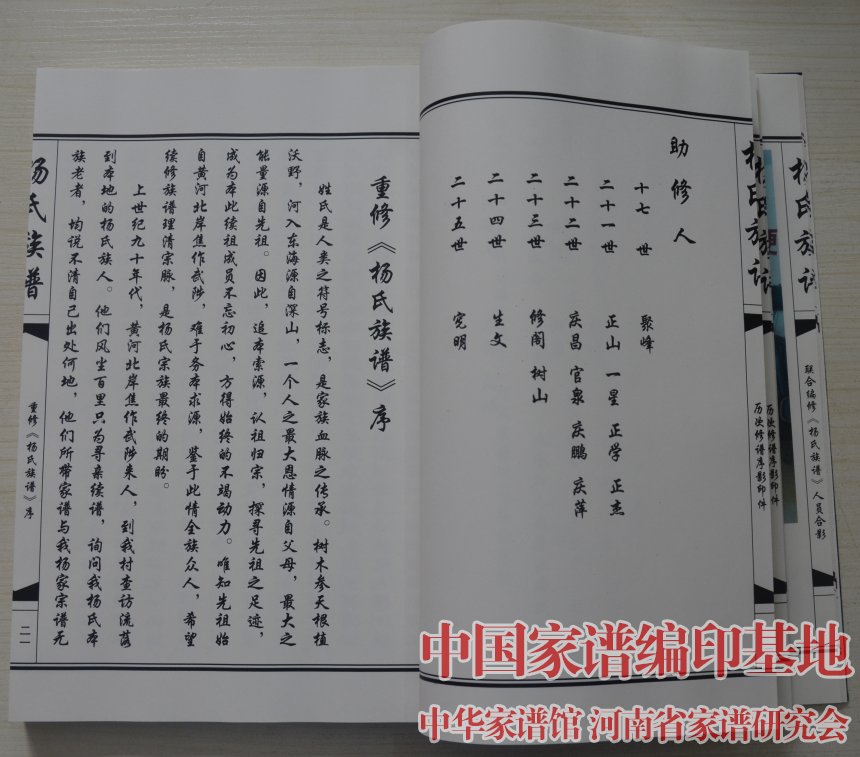 助修人
十七世 聚峰
二十一世 正山 一星 正学 正杰
二十二世 庆昌 官泉 庆鹏 庆萍
二十三世 修阁 树山
二十四世 生文
二十五世 宪明
重修《杨氏族谱》序
姓氏是人类之符号标志，是家族血脉之传承。树木参天根植
沃野，河入东海源自深山，一个人之最大恩情源自父母，最大之
能量源自先祖。因此，追本索源，认祖归宗，探寻先祖之足迹，
成为本此续祖成员不忘初心，方得始终的不竭动力。唯知先祖始
自黄河北岸焦作武陟，难于务本求源，鉴于此情全族众人，希望
续修族谱理清宗脉，是杨氏宗族最终的期盼。
上世纪九十年代，黄河北岸焦作武陟来人，到我村查访流落
到本地的杨氏族人。他们风尘百里只为寻亲续谱，询问我杨氏本
族老者，均说不清自己出处何地，他们所带家谱与我杨家宗谱无
杨氏族谱
重修《杨氏族谱》序
二一
杨氏族谱
历次修谱序影印件
历次修谱序影印件
杨氏族谱
联合编修《杨氏族谱》人员合影
中国家谱编印基地
中华家谱馆 河南省家谱研究会